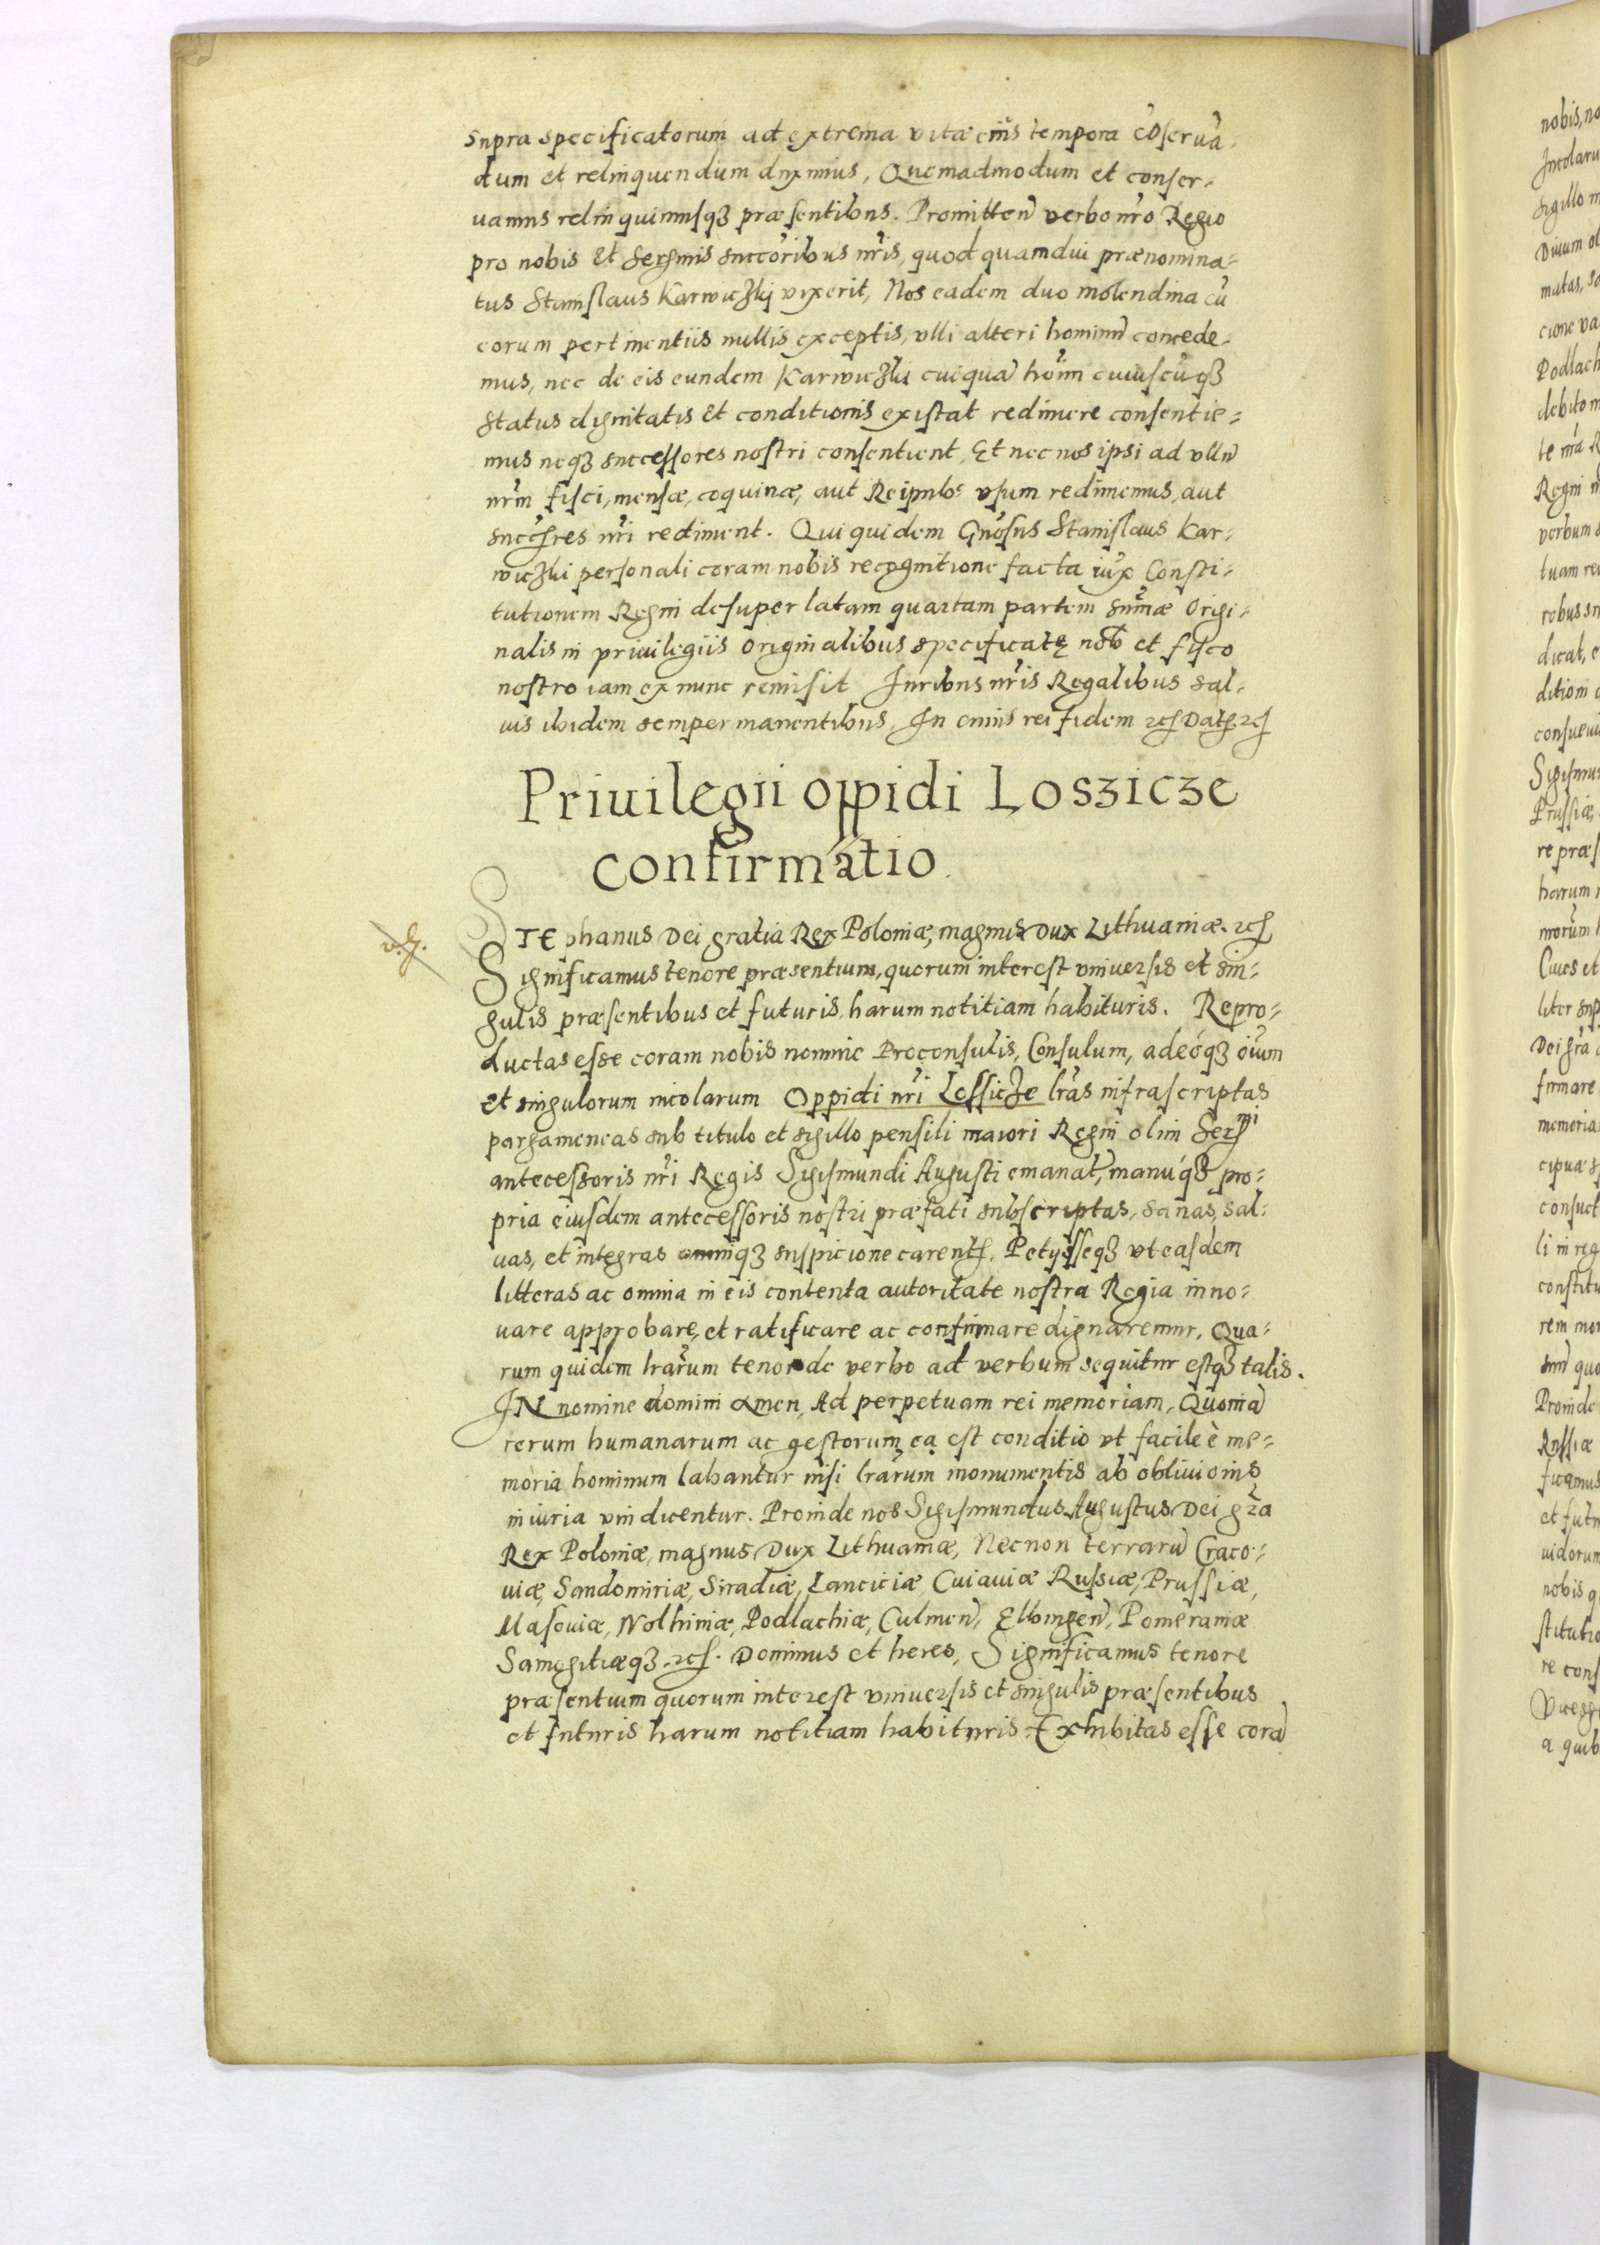 supra specificatorum ad extrema vitae eius tempora cōserua-
dum et relinquendum duximus, Quemadmodum et conser-
uamus relinquimusqꝫ praesentibus. Promitteñ verbo nr̃o Regio
pro nobis et Serẽmis succõribus nr̃is, quod quamdiu praenomina-
tus Stanislaus Karwiczkÿ vixerit, Nos eadem duo molendina cũ
eorum pertinentiis nullis exceptis, vlli alteri hominũ concede-
mus, nec de eis eundem Karwiczki cuiquã hoĩm cuiuscũqꝫ
Status dignitatis et conditionis existat redimere consentie-
mus neqꝫ successores nostri consentient, Et nec nos ipsi ad vllũ
nr̃m fisci, mensae, coquinae, aut Reipub: vsum redimemus, aut
succẽsres nr̃i rediment. Qui quidem Gnõsus Stanislaus Kar-
wiczki personali coram nobis recognitione facta iux̃ Consti-
tutionem Regni desuper latam quartam partem sum̃ae Origi-
nalis in priuilegiis originalibus specificatę nob̃ et fisco
nostro iam ex nunc remisit Iuribus nr̃is Regalibus sal-
uis ibidem semper manentibus, In cuius rei fidem etc̃ Datẽ etc̃
Priuilegii oppidi Losziczе
confirmatio.
STEphanus Dei gratia Rex Poloniae, magnus Dux Lithuaniae. etc̃
Significamus tenore praesentium, quorum interest vniuersis et sin-
gulis praesentibus et futuris, harum notitiam habituris. Repro-
ductas esse coram nobis nomine Proconsulis, Consulum, adeóqꝫ oĩum
et singulorum incolarum Oppidi nr̃i Lossicze lr̃as infrascriptas
pargameneas sub titulo et sigillo pensili maiori Regni olim Serẽmi
antecessoris nr̃i Regis Sigismundi Augusti emanat̃, manúqꝫ pro-
pria eiusdem antecessoris nostri praefati subscriptas, sanas, sal-
uas, et integras omniqꝫ suspicione carentẽs. Petijsseqꝫ vt easdem
litteras ac omnia in eis contenta autoritate nostra Regia inno-
uare approbare, et ratificare ac confirmare dignaremur. Qua-
rum quidem lr̃arum tenor de verbo ad verbum sequitur estqꝫ talis.
IN nomine domini amen, Ad perpetuam rei memoriam, Quoniã
rerum humanarum ac gestorum ea est conditio vt facile è me-
moria hominum labantur nisi lr̃arum monumentis ab obliuionis
iniuria vindicentur. Proinde nos Sigismundus Augustus Dei gr̃a
Rex Poloniae, magnus Dux Lithuaniae, Necnon terrarũ Craco-
uiae, Sandomiriae, Siradiae, Lanciciae, Cuiauiae Russiae, Prussiae,
Masouiae, Wolhiniae, Podlachiae, Culmeñ, Elbingeñ, Pomeraniae
Samogitiaeqꝫ. etc̃. Dominus et heres, Significamus tenore
praesentium quorum interest vniuersis et singulis praesentibus
et futuris harum notitiam habituris. Exhibitas esse corã